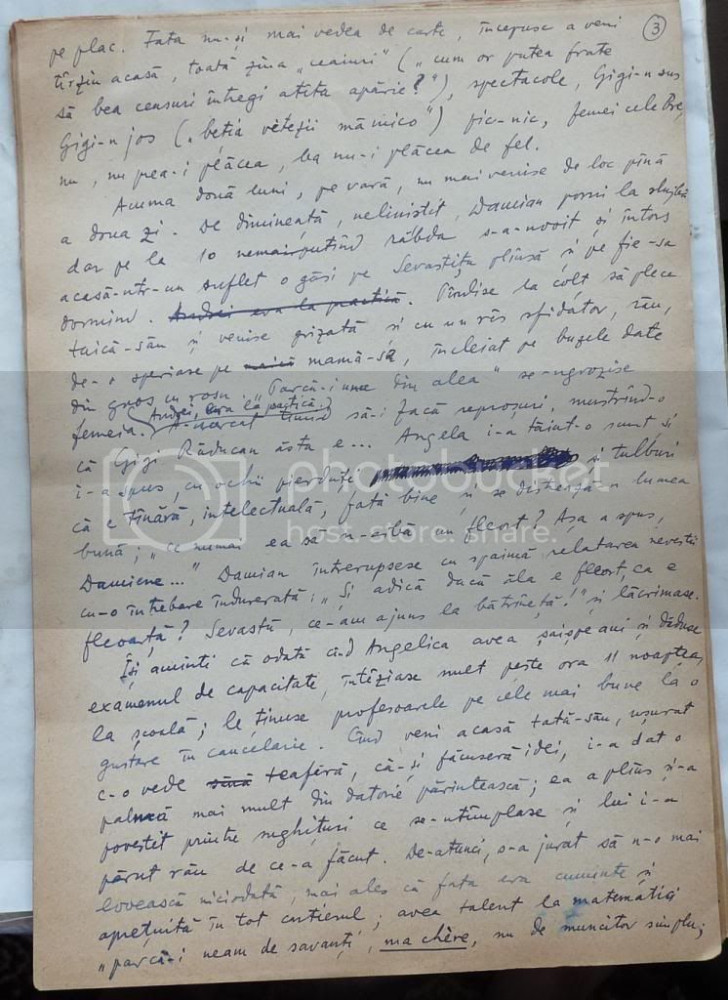 3
pe plac. Fata nu-și mai vedea de carte, începuse a veni
tîrziu acasă, toată ziua „ceaiuri” („cum or putea frate
să bea ceasuri întregi atîta apărie?”), spectacole, Gigi-n sus
Gigi-n jos („beția vieții mămico”) pic-nic, femei celebre,
nu, nu prea-i plăcea, ba nu-i plăcea de fel.
Acuma două luni, pe vară, nu mai venise de loc pînă
a doua zi. De dimineață, neliniștit, Damian porni la slujbă
dar pe la 10 nemaiputînd răbda s-a-nvoit și întors
acasă-ntr-un suflet o găsi pe Sevastița plînsă și pe fie-sa
dormind. Andrei era la practică. Pîndise la colț să plece
taică-său și venise grizată și cu un rîs sfidător, rău,
de-o speriase pe mamă-sa, încleiat pe buzele date
din gros cu roșu. „Parcă-i una din alea” se-ngrozise
femeia. Andrei era la practică.
A-ncercat timid să-i facă reproșuri, mustrînd-o
că Gigi Răducan ăsta e... Angela i-a tăiat-o scurt și
i-a spus, cu ochii pierduți și tulburi
că e tînără, intelectuală, fată bine și se distrează-n lumea
bună; „ce numai ea să n-aibă un fleort? Așa a spus,
Damiene...” Damian întrerupsese cu spaimă relatarea nevestii
cu-o întrebare îndurerată: „Și adică dacă ăla e fleort, ea e
fleoarță? Sevastă, ce-am ajuns la bătrînețe!” și lăcrimase.
Își aminti că odată cînd Angelica avea șaișpe ani și dăduse
examenul de capacitate, întîrziase mult peste ora 11 noaptea,
la școală; le ținuse profesoarele pe cele mai bune la o
gustare în cancelarie. Cînd veni acasă tată-său, ușurat
c-o vede teafără, că-și făcuseră idei, i-a dat o
palmă mai mult din datorie părintească; ea a plîns și-a
povestit printre sughițuri ce se-ntîmplase și lui i-a
părut rău de ce-a făcut. De-atunci, s-a jurat să n-o mai
lovească niciodată, mai ales că fata era cuminte și
aprețuită în tot cartierul; avea talent la matematici
„parcă-i neam de savanți, ma chère, nu de muncitor simplu;
photobucket
host. store. share.